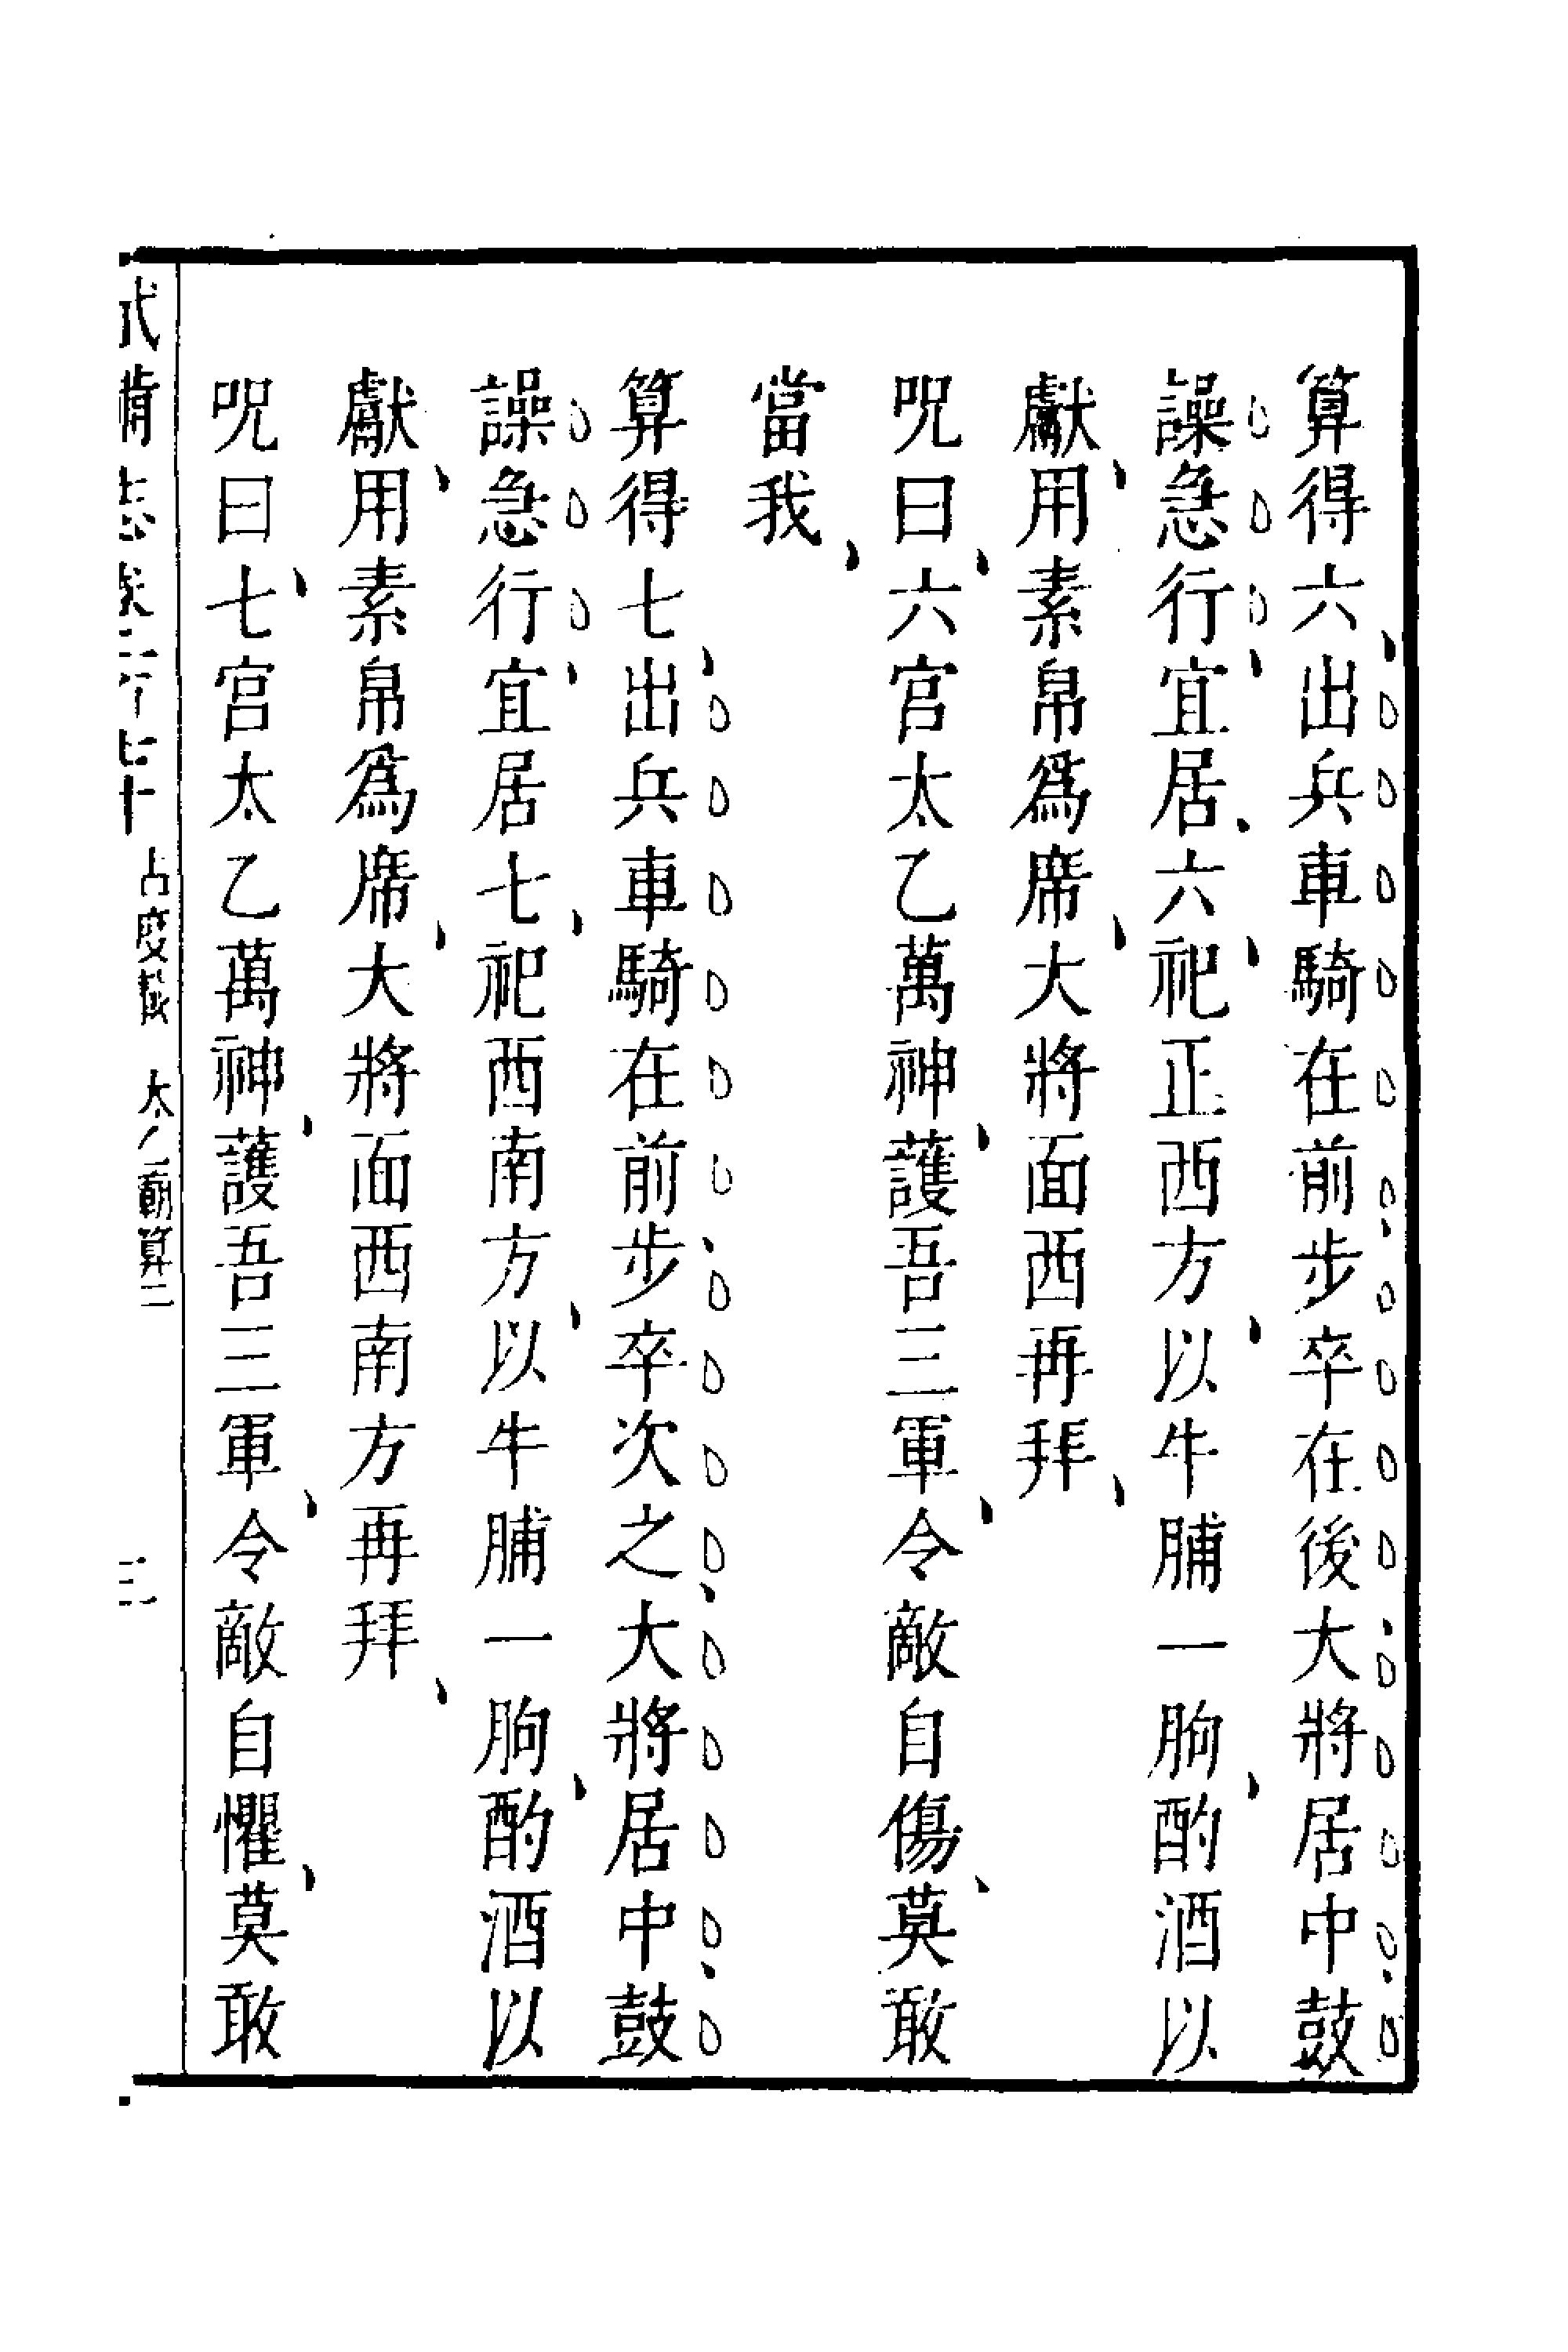 算得六出兵車騎在前步卒在後大將居中鼓
譟急行宜居六祀正西方以牛脯一朐酌酒以
獻用素帛為席大將面西再拜
呪曰六宮太乙萬神護吾三軍令敵自傷莫敢
當我
算得七出兵車騎在前步卒次之大將居中鼓
譟急行宜居七祀西南方以牛脯一朐酌酒以
獻用素帛為席大將面西南方再拜
呪曰七宮太乙萬神護吾三軍令敵自懼莫敢
武備志 占度載 太乙 廟算二 三